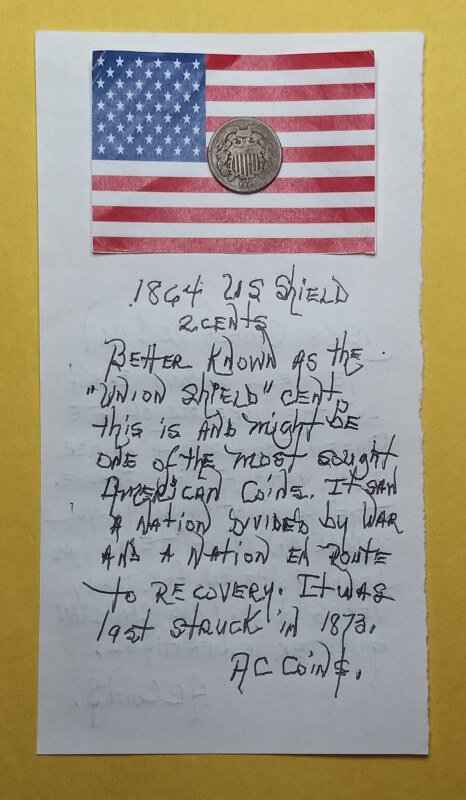 1864 US SHIELD
2 CENTS
BETTER KNOWN AS the
"UNION SHIELD" CENT,
this is AND might BE
ONE of the most sought
AMERICAN COINS. It SAW
A NATION DIVIDED by WAR
AND A NATION EN ROUTE
to RECOVERY. It WAS
last STRUCK in 1873.
AC COINS.